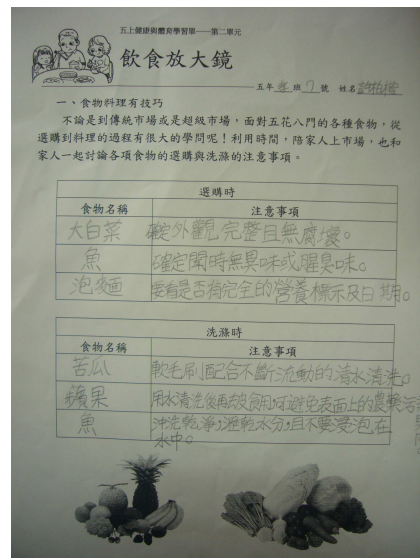 五上健康與體育學習單——第二單元
飲食放大鏡
五年孝班7號 姓名許柏
一、食物料理有技巧
不論是到傳統市場或是超級市場，面對五花八門的各種食物，從
選購到料理的過程有很大的學問呢！利用時間，陪家人上市場，也和
家人一起討論各項食物的選購與洗滌的注意事項。
選購時
食物名稱 注意事項
大白菜 確定外觀完整且無腐壞。
魚 確定聞時無臭味或腥臭味。
泡麵 要看是否有完全的營養標示及日期。
洗滌時
食物名稱 注意事項
苦瓜 軟毛刷配合不斷流動的清水清洗。
蘋果 用水清洗後再去皮食用，可避免表面上的農藥
魚 沖洗乾淨，瀝乾水分，且不要浸泡在
水中。